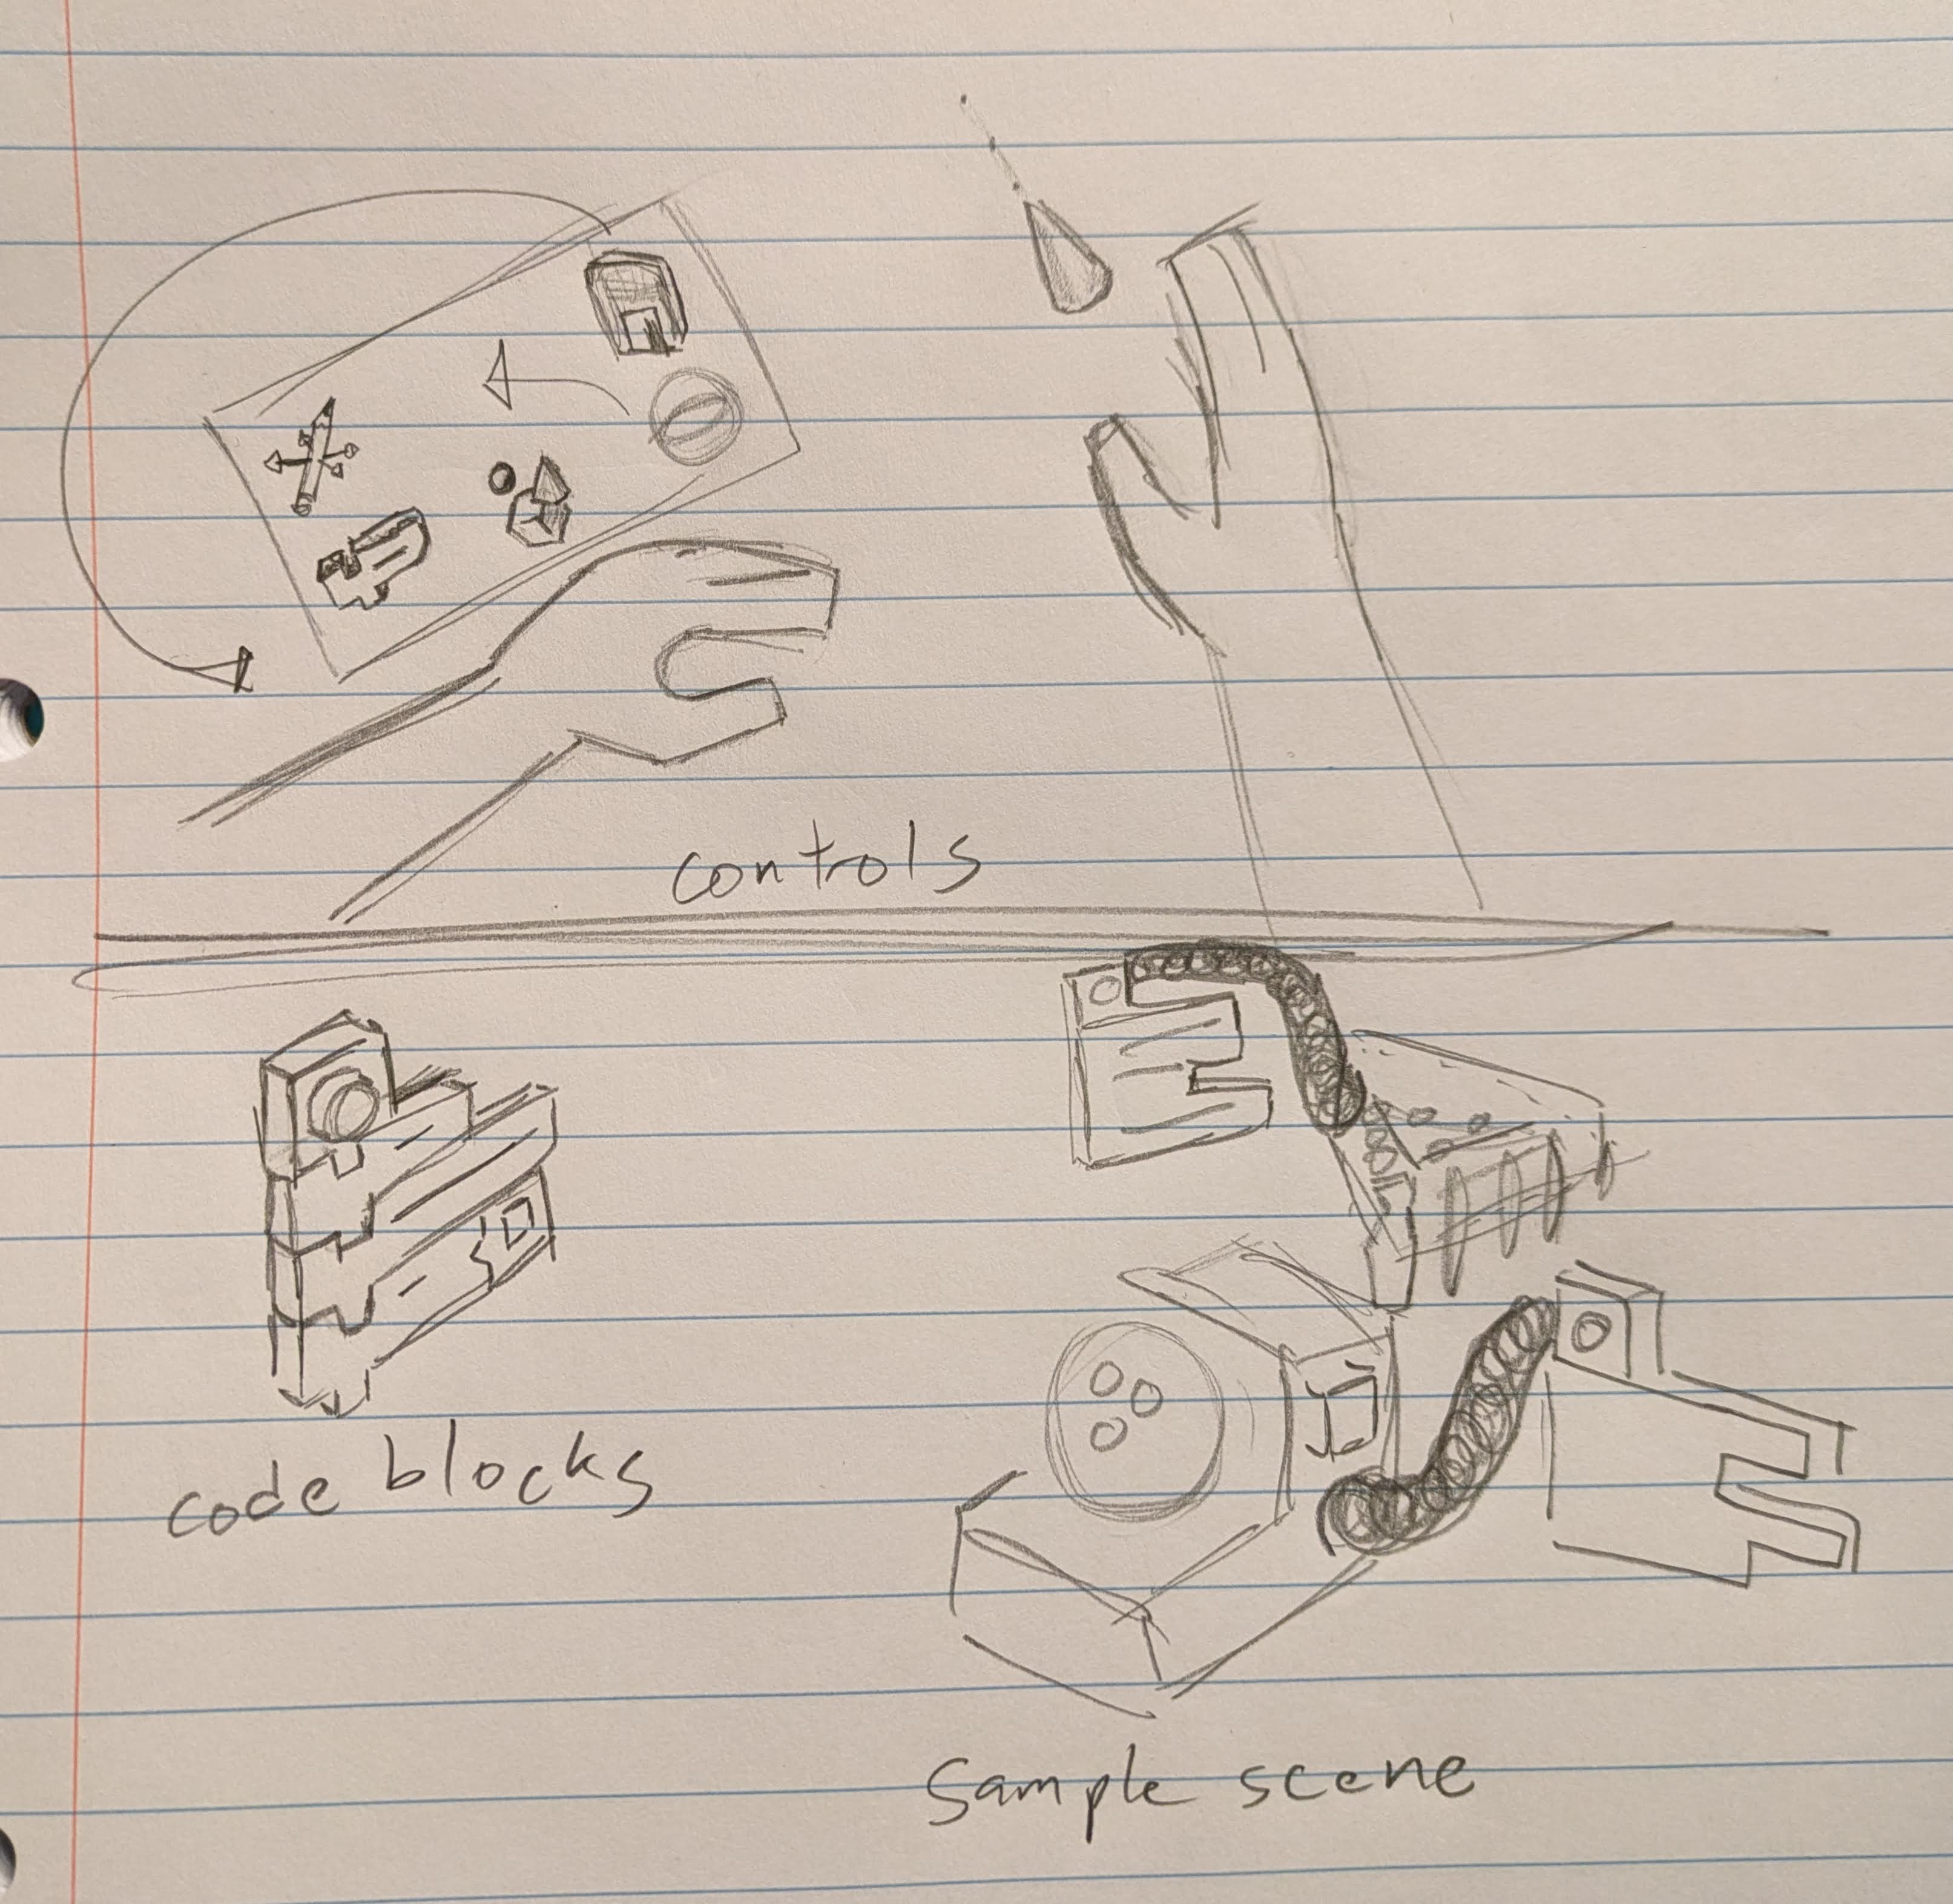 controls
code blocks
sample scene